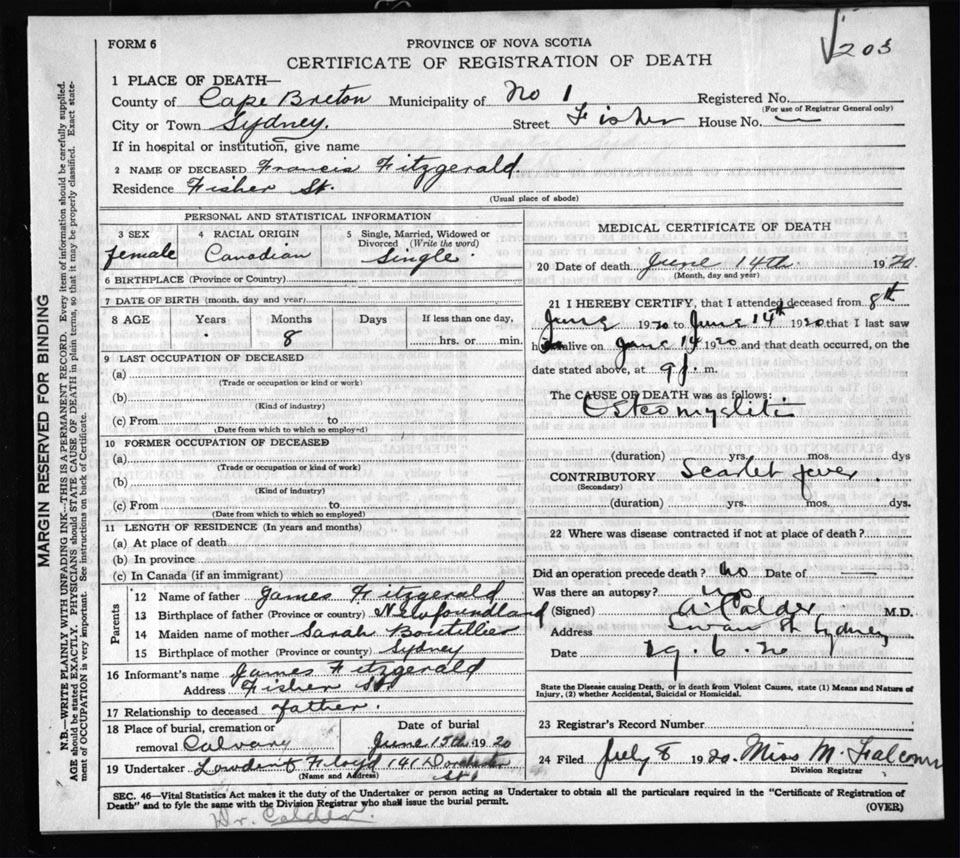 FORM 6
PROVINCE OF NOVA SCOTIA
203
CERTIFICATE OF REGISTRATION OF DEATH
1 PLACE OF DEATH—
County of Cape Breton Municipality of No 1 Registered No.
(For use of Registrar General only)
City or Town Sydney. Street Fisher House No. —
If in hospital or institution, give name
2 NAME OF DECEASED Francis Fitzgerald.
Residence Fisher St.
(Usual place of abode)
PERSONAL AND STATISTICAL INFORMATION
3 SEX 4 RACIAL ORIGIN 5 Single, Married, Widowed or Divorced (Write the word)
female Canadian Single.
6 BIRTHPLACE (Province or Country)
7 DATE OF BIRTH (month, day and year)
8 AGE Years Months Days If less than one day,
8 hrs. or min.
9 LAST OCCUPATION OF DECEASED
(a)
(Trade or occupation or kind or work)
(b)
(Kind of industry)
(c) From to
(Date from which to which so employed)
10 FORMER OCCUPATION OF DECEASED
(a)
(Trade or occupation or kind of work)
(b)
(Kind of industry)
(c) From to
(Date from which to which so employed)
11 LENGTH OF RESIDENCE (In years and months)
(a) At place of death
(b) In province
(c) In Canada (if an immigrant)
Parents
12 Name of father James Fitzgerald
13 Birthplace of father (Province or country) Newfoundland
14 Maiden name of mother Sarah Boutillier
15 Birthplace of mother (Province or country) Sydney
16 Informant's name James Fitzgerald
Address Fisher St.
17 Relationship to deceased father.
18 Place of burial, cremation or removal Calvary
Date of burial
June 15th 1920
19 Undertaker Lowden & Floyd 141 Dorchester St.
(Name and Address)
MEDICAL CERTIFICATE OF DEATH
20 Date of death June 14th 1920.
(Month, day and year)
21 I HEREBY CERTIFY, that I attended deceased from 8th
June 1920 to June 14th 1920 that I last saw
h alive on June 14 1920 and that death occurred, on the
date stated above, at 9 p. m.
The CAUSE OF DEATH was as follows:
Osteomyelitis
(duration) yrs. mos. dys
CONTRIBUTORY Scarlet fever
(Secondary)
(duration) yrs. mos. dys.
22 Where was disease contracted if not at place of death?
Did an operation precede death? No Date of —
Was there an autopsy? no
(Signed) A. Calder M.D.
Address Sydney
Date 19.6.20
State the Disease causing Death, or in death from Violent Causes, state (1) Means and Nature of
Injury, (2) whether Accidental, Suicidal or Homicidal.
23 Registrar's Record Number
24 Filed July 8 1920. Miss M.
Division Registrar
SEC. 46—Vital Statistics Act makes it the duty of the Undertaker or person acting as Undertaker to obtain all the particulars required in the "Certificate of Registration of
Death" and to fyle the same with the Division Registrar who shall issue the burial permit.
(OVER)
Dr. Calder.
MARGIN RESERVED FOR BINDING
N.B.—WRITE PLAINLY WITH UNFADING INK—THIS IS A PERMANENT RECORD. Every item of information should be carefully supplied.
AGE should be stated EXACTLY. PHYSICIANS should STATE CAUSE OF DEATH in plain terms, so that it may be properly classified. Exact state-
ment of OCCUPATION is very important. See instructions on back of Certificate.